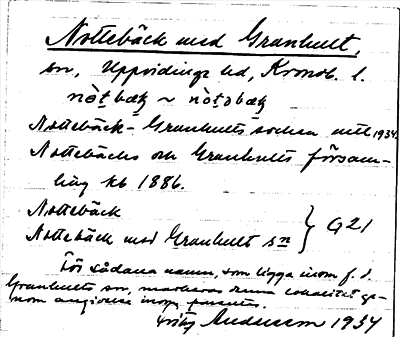 Nottebäck med Granhult,
sn, Uppvidinge hd, Kronob. l.
nòt̠bæk ~ nòt̠əbæk
Nottebäck-Granhults socken 1934
Nottebäcks och Granhults försam-
ling kb 1886.
Nottebäck
Nottebäck med Granhult sn } G 21
För sådana namn, som ligga inom f. d.
Granhults sn, markeras denna lokalitet ge-
nom angivelse inom parentes.
Andersson 1934